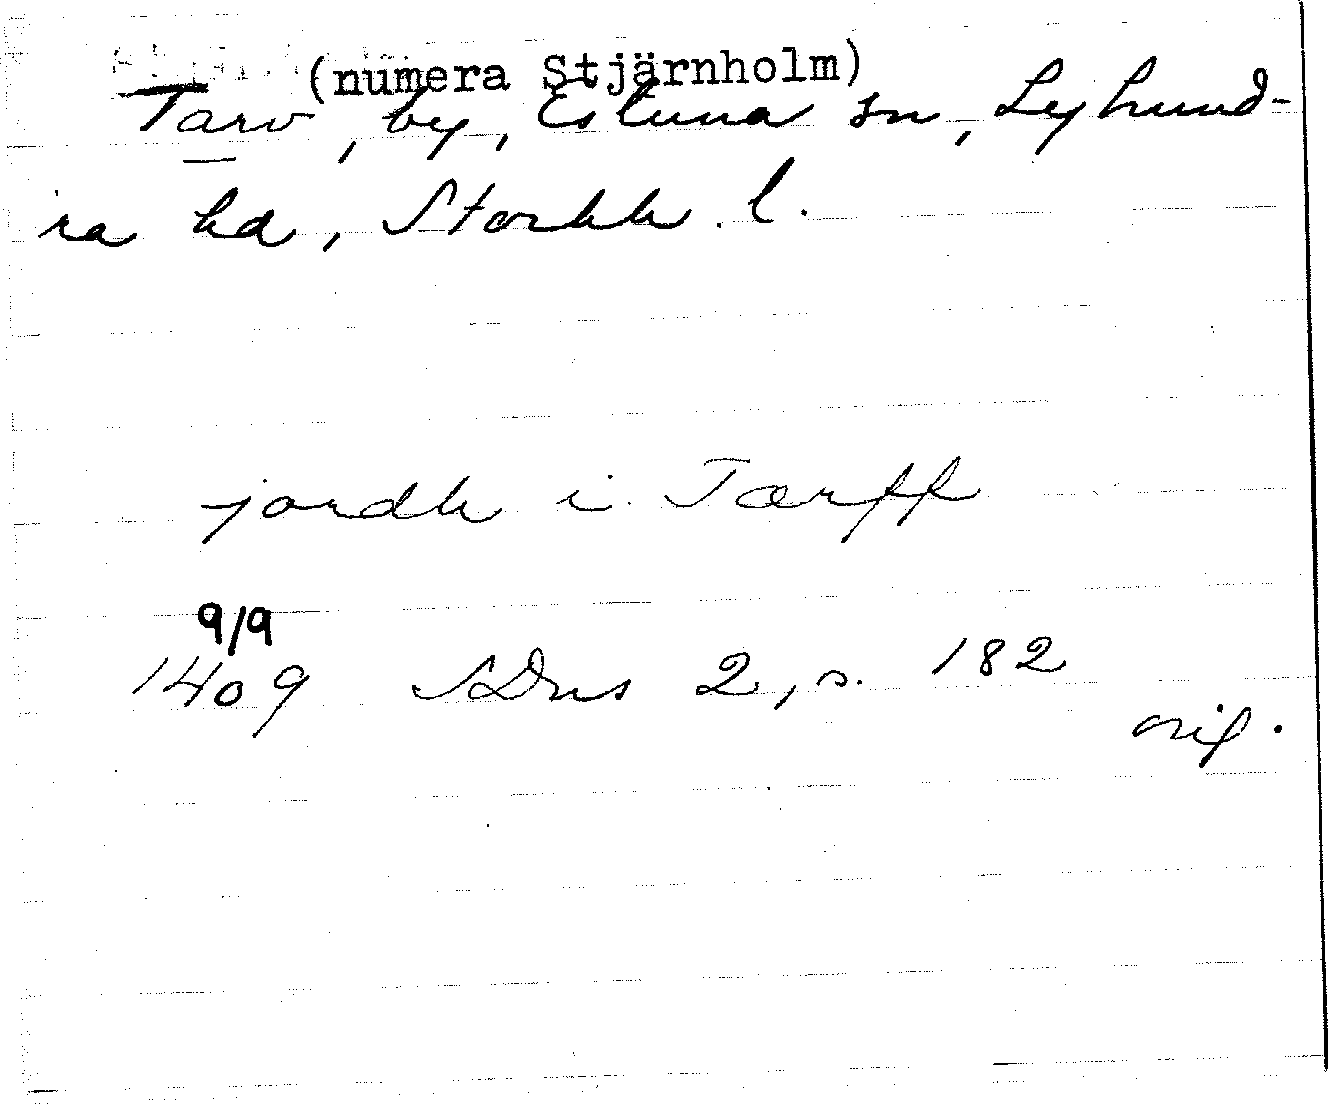 (numera Stjärnholm)
Tarv, by, Estuna sn, Lyhund-
ra hd, Stockh. l.
jordh i Tærff
9/9
1409 SDns 2, s. 182
orig.